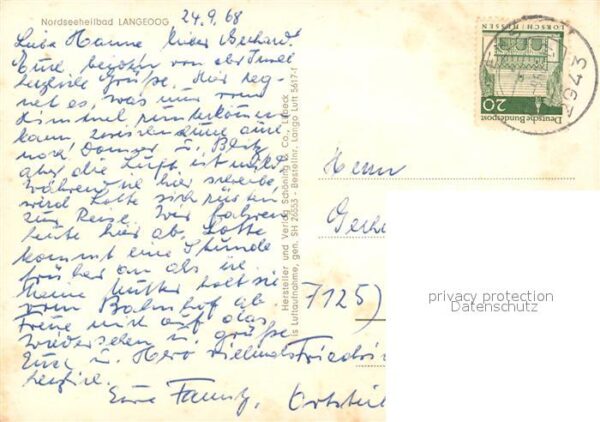 Nordseeheilbad LANGEOOG
24.9.68
Liebe Hanne, lieber Gerhard.
Euch von der Insel
herzliche Grüße. Hier reg-
net es, was nur vom
Himmel runterkommen
kann, zwischendurch auch
noch Donner u. Blitz,
aber die Luft ist mild.
Während ich hier schreibe,
wird Lotte sich rüsten
zur Reise. Wir fahren
heute hier ab. Lotte
kommt eine Stunde
früher an als ich.
Meine Mutter holt sie
vom Bahnhof ab.
Freue mich auf das
Wiedersehen u. grüße
Euch u. Herrn vielmals
herzlich.
Eure
Hersteller und Verlag Schöning & Co., Lübeck
ls Luftaufnahme, gen. SH 26553 - Bestellnr. Lango Luft 5617-1
LORSCH/HESSEN
Deutsche Bundespost
20
2943
Herrn
Gerh
7125)
Friedri
Ortsst
privacy protection
Datenschutz